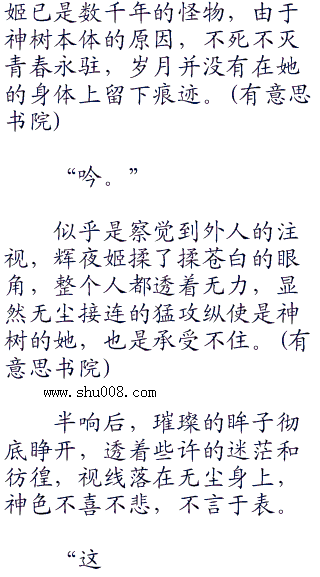 姬已是数千年的怪物，由于
神树本体的原因，不死不灭
青春永驻，岁月并没有在她
的身体上留下痕迹。(有意思
书院)
“吟。”
似乎是察觉到外人的注
视，辉夜姬揉了揉苍白的眼
角，整个人都透着无力，显
然无尘接连的猛攻纵使是神
树的她，也是承受不住。(有
意思书院)
www.shu008.com
半响后，璀璨的眸子彻
底睁开，透着些许的迷茫和
彷徨，视线落在无尘身上，
神色不喜不悲，不言于表。
“这